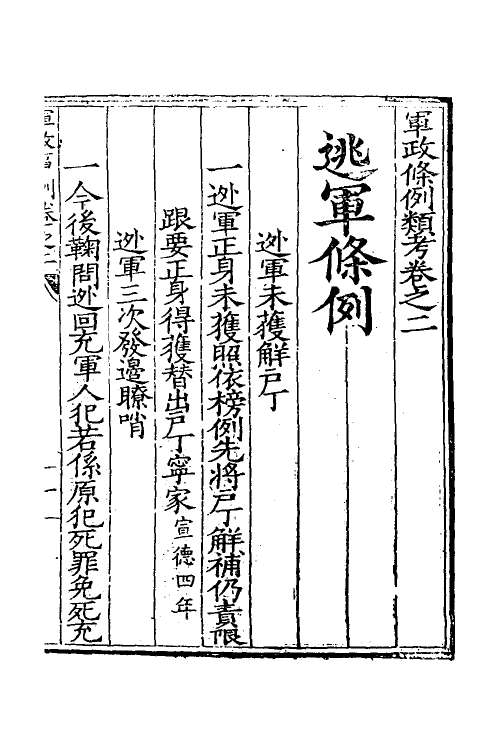 軍政條例類考卷之二
逃軍條例
逃軍未獲解戶丁
一逃軍正身未獲照依榜例先將戶丁解補仍責限
跟要正身得獲替出戶丁寧家宣德四年
逃軍三次發邊瞭哨
一今後鞠問逃回充軍人犯若係原犯死罪免死充